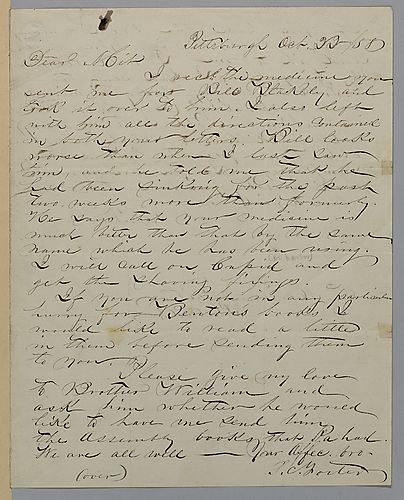 Pittsburgh Oct. 23/58
Dear Mit
I recd. the medicine you
sent me for Bill Blakely and
took it over to him. I also left
with him all the directions contained
in both your letters. Bill looks
worse than when I last saw
him, and he told me that he
had been sinking for the past
two weeks more than formerly.
He says that your medicine is
much better than that by the same
name which he has been using.
I will call on Cupid and
get the shaving fixings.
If you are not in any particular
hurry for Benton's books I
would like to read a little
in them before sending them
to you. Please give my love
to Brother William and
ask him whether he would
like to have me send him
the Assembly books that Pa had.
We are all well — Your Affec. bro.
S. C. Foster
(over)